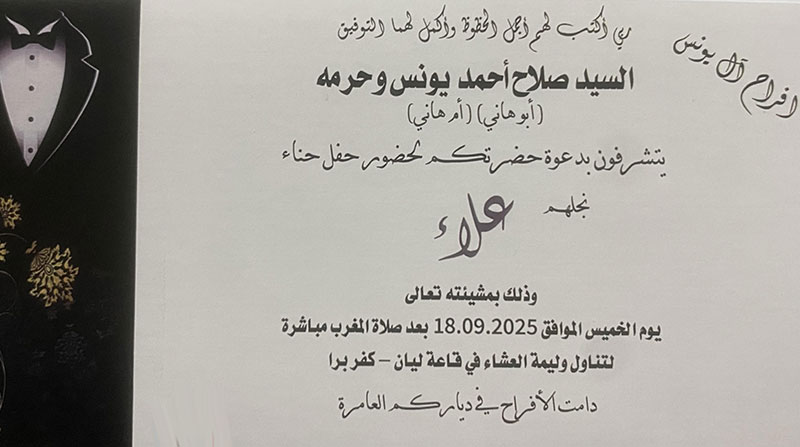 افراح آل يونس
ربي أكتب لهم أجمل الحظوظ وأكمل لهما التوفيق
السيد صلاح أحمد يونس وحرمه
(أبو هاني) (أم هاني)
يتشرفون بدعوة حضرتكم لحضور حفل حناء
نجلهم
علاء
وذلك بمشيئته تعالى
يوم الخميس الموافق 18.09.2025 بعد صلاة المغرب مباشرة
لتناول وليمة العشاء في قاعة ليان – كفر برا
دامت الأفراح في دياركم العامرة